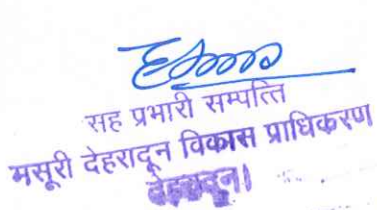 सह प्रभारी सम्पत्ति
मसूरी देहरादून विकास प्राधिकरण
देहरादून।